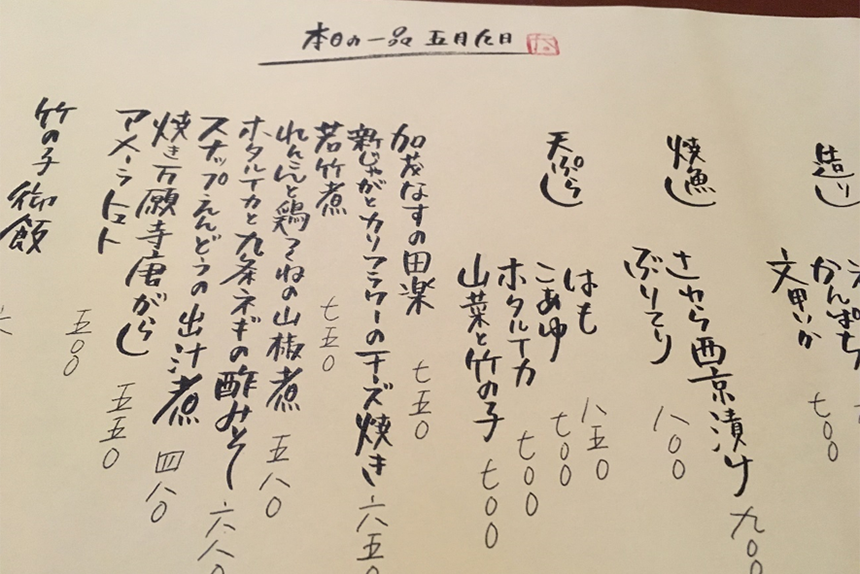 本日の一品 五月 日
造り
かんぱち
文甲いか 七〇〇
焼魚
さわら西京漬け 九〇〇
ぶりてり 八〇〇
天ぷら
はも 八五〇
こあゆ 七〇〇
ホタルイカ 七〇〇
山菜と竹の子 七〇〇
加茂なすの田楽 七五〇
新じゃがとカリフラワーのチーズ焼き 六五〇
若竹煮 七五〇
れんこんと鶏つくねの山椒煮 五八〇
ホタルイカと九条ネギの酢みそ 六八〇
スナップえんどうの出汁煮 四八〇
焼き万願寺唐がらし 五五〇
アメーラトマト 五〇〇
竹の子御飯